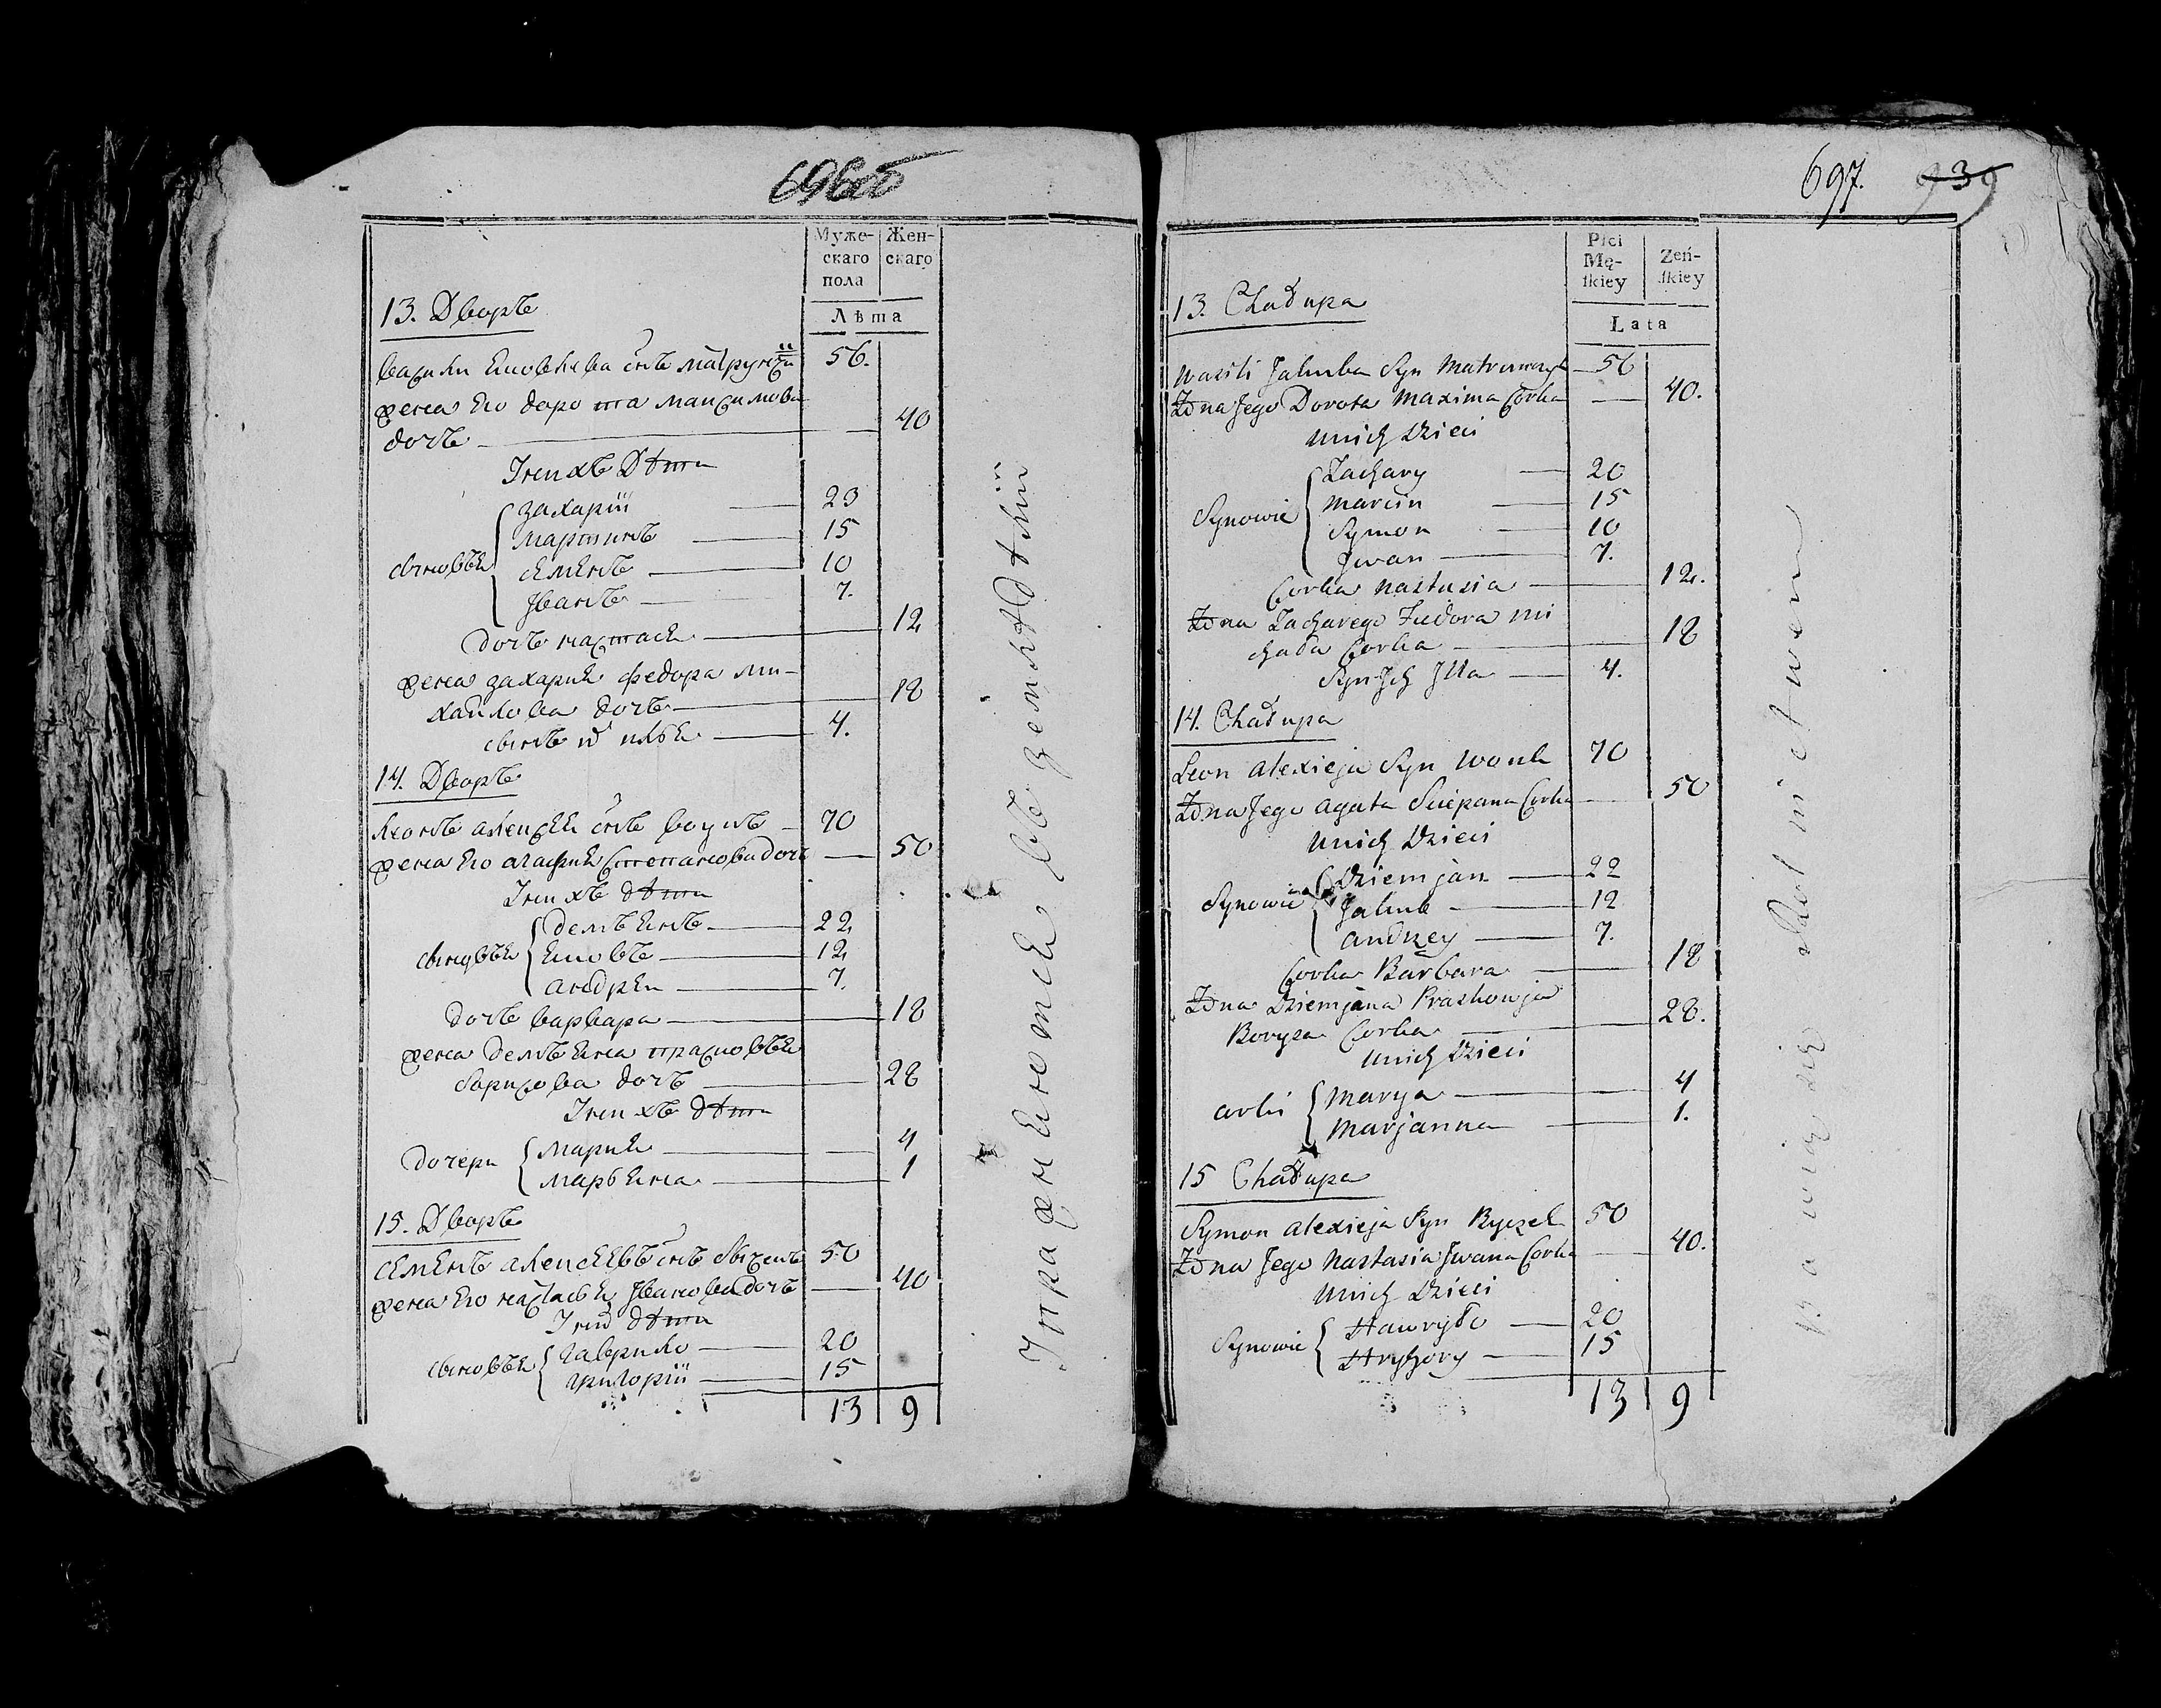 696об
Муже-
скаго
пола
Жен-
скаго
Лѣта
13. Дворъ
Василы Яковлева снъ 56.
жена Его Дорота Максимова
дочъ 40
Інихъ Дѣти
сыновья
Захарiй 23
Мартинъ 15
Семенъ 10
Іванъ 7.
дочъ Настася 12
жена Захария Федора Ми-
хайлова дочъ 18
сынъ Илья 4.
14. Дворъ
Леонъ Алексея снъ 70
жена Его Агафия Степанова дочъ 50
Інихъ дѣти
сыновья
Демьянъ 22
Яковъ 12
Андрей 7.
дочъ Варвара 18
жена Демьяна Прасковья
Борисова дочъ 28
Інихъ дѣти
дочери
Мария 4
Марьяна 1
15. Дворъ
Семенъ Алексеевъ снъ 50
жена Его Настасья Іванова дочъ 40
Іних дѣти
сыновья
Гаврило 20
Григорій 15
13 9
697. 939
Płci
Mę-
ſkiey
Żeń-
ſkiey
Lata
13. Chałupa
Wasili Jakuba Syn 56
Żona Jego Dorota Maxima Corka 40.
Unich Dzieci
Synowie
Zachary 20
Marcin 15
Symon 10
Jwan 7.
Corka Nastusia 12.
Żona Zacharego Fiedora Mi
chała Corka 18
Syn Jch Jlla 4.
14. Chałupa
Leon Alexieja Syn Wouk 70
Żona Jego Agata Sciepana Corka 50
Unich Dzieci
Synowie
Dziemjan 22
Jakub 12
Andrzey 7.
Corka Barbara 18
Żona Dziemjana Praskowja
Borysa Corka 28.
Unich Dzieci
Corki
Marya 4
Marjanna 1.
15 Chałupa
Symon Alexieja Syn 50
Żona Jego Nastasia Jwana Corka 40.
Unich Dzieci
Synowie
Hawryło 20
Hryhory 15
13 9